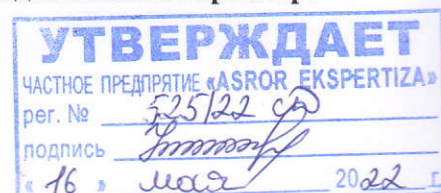 УТВЕРЖДАЕТ
ЧАСТНОЕ ПРЕДПРЯТИЕ «ASROR EKSPERTIZA»
рег. № 525/22
подпись
« 16 » мая 2022 г